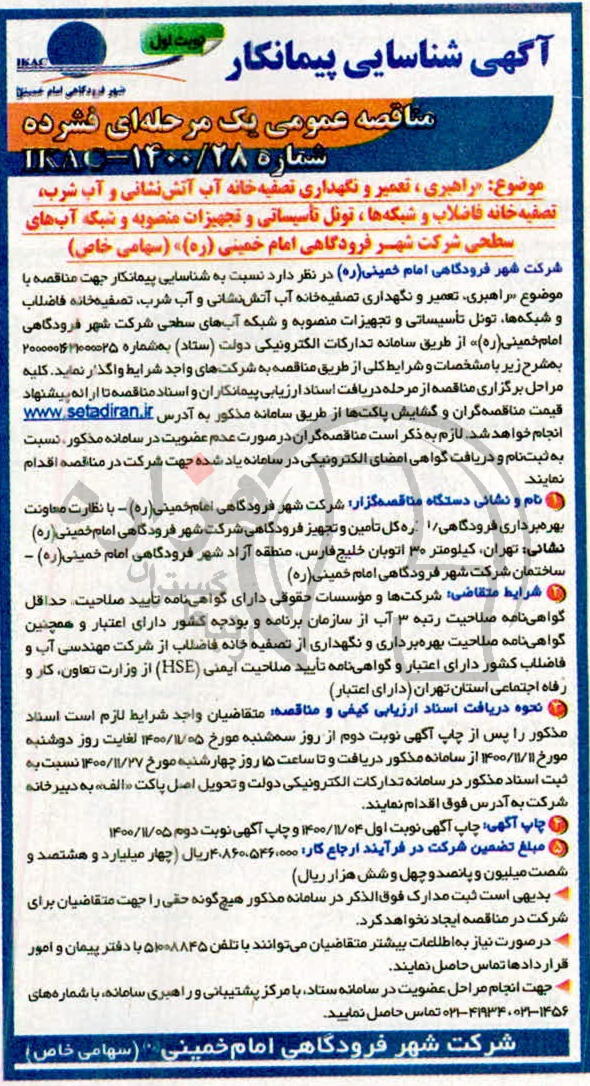 نوبت اول
آگهی شناسایی پیمانکار
IKAC
شهر فرودگاهی امام خمینی
مناقصه عمومی یک مرحله‌ای فشرده
شماره IKAC-۱۴۰۰/۲۸
موضوع: «راهبری، تعمیر و نگهداری تصفیه‌خانه آب آتش‌نشانی و آب شرب،
تصفیه‌خانه فاضلاب و شبکه‌ها، تونل تأسیساتی و تجهیزات منصوبه و شبکه آب‌های
سطحی شرکت شهر فرودگاهی امام خمینی (ره)» (سهامی خاص)
شرکت شهر فرودگاهی امام خمینی(ره) در نظر دارد نسبت به شناسایی پیمانکار جهت مناقصه با
موضوع «راهبری، تعمیر و نگهداری تصفیه‌خانه آب آتش‌نشانی و آب شرب، تصفیه‌خانه فاضلاب
و شبکه‌ها، تونل تأسیساتی و تجهیزات منصوبه و شبکه آب‌های سطحی شرکت شهر فرودگاهی
امام‌خمینی(ره)» از طریق سامانه تدارکات الکترونیکی دولت (ستاد) به‌شماره
به‌شرح زیر با مشخصات و شرایط کلی از طریق مناقصه به شرکت‌های واجد شرایط واگذار نماید. کلیه
مراحل برگزاری مناقصه از مرحله دریافت اسناد ارزیابی پیمانکاران و اسناد مناقصه تا ارائه پیشنهاد
قیمت مناقصه‌گران و گشایش پاکت‌ها از طریق سامانه مذکور به آدرس www.setadiran.ir
انجام خواهد شد. لازم به ذکر است مناقصه‌گران در صورت عدم عضویت در سامانه مذکور، نسبت
به ثبت‌نام و دریافت گواهی امضای الکترونیکی در سامانه یاد شده جهت شرکت در مناقصه اقدام
نمایند.
۱ نام و نشانی دستگاه مناقصه‌گزار: شرکت شهر فرودگاهی امام‌خمینی(ره) – با نظارت معاونت
بهره‌برداری فرودگاهی/ اداره کل تأمین و تجهیز فرودگاهی شرکت شهر فرودگاهی امام‌خمینی(ره)
نشانی: تهران، کیلومتر ۳۰ اتوبان خلیج‌فارس، منطقه آزاد شهر فرودگاهی امام خمینی(ره) –
ساختمان شرکت شهر فرودگاهی امام خمینی(ره)
۲ شرایط متقاضی: شرکت‌ها و مؤسسات حقوقی دارای گواهی‌نامه تأیید صلاحیت، حداقل
گواهی‌نامه صلاحیت رتبه ۳ آب از سازمان برنامه و بودجه کشور دارای اعتبار و همچنین
گواهی‌نامه صلاحیت بهره‌برداری و نگهداری از تصفیه خانه فاضلاب از شرکت مهندسی آب و
فاضلاب کشور دارای اعتبار و گواهی‌نامه تأیید صلاحیت ایمنی (HSE) از وزارت تعاون، کار و
رفاه اجتماعی استان تهران (دارای اعتبار)
۳ نحوه دریافت اسناد ارزیابی کیفی و مناقصه: متقاضیان واجد شرایط لازم است اسناد
مذکور را پس از چاپ آگهی نوبت دوم از روز سه‌شنبه مورخ ۱۴۰۰/۱۱/۰۵ لغایت روز دوشنبه
مورخ ۱۴۰۰/۱۱/۱۱ از سامانه مذکور دریافت و تا ساعت ۱۵ روز چهارشنبه مورخ ۱۴۰۰/۱۱/۲۷ نسبت به
ثبت اسناد مذکور در سامانه تدارکات الکترونیکی دولت و تحویل اصل پاکت «الف» به دبیرخانه
شرکت به آدرس فوق اقدام نمایند.
۴ چاپ آگهی: چاپ آگهی نوبت اول ۱۴۰۰/۱۱/۰۴ و چاپ آگهی نوبت دوم ۱۴۰۰/۱۱/۰۵
۵ مبلغ تضمین شرکت در فرآیند ارجاع کار: ۴،۸۶۰،۵۴۶،۰۰۰ ریال (چهار میلیارد و هشتصد و
شصت میلیون و پانصد و چهل و شش هزار ریال)
بدیهی است ثبت مدارک فوق‌الذکر در سامانه مذکور هیچ‌گونه حقی را جهت متقاضیان برای
شرکت در مناقصه ایجاد نخواهد کرد.
در صورت نیاز به اطلاعات بیشتر متقاضیان می‌توانند با تلفن ۵۱۰۰۸۸۴۵ با دفتر پیمان و امور
قراردادها تماس حاصل نمایند.
جهت انجام مراحل عضویت در سامانه ستاد، با مرکز پشتیبانی و راهبری سامانه، با شماره‌های
۰۲۱-۱۴۵۶، ۰۲۱-۴۱۹۳۴ تماس حاصل نمایید.
شرکت شهر فرودگاهی امام خمینی(ره) (سهامی خاص)